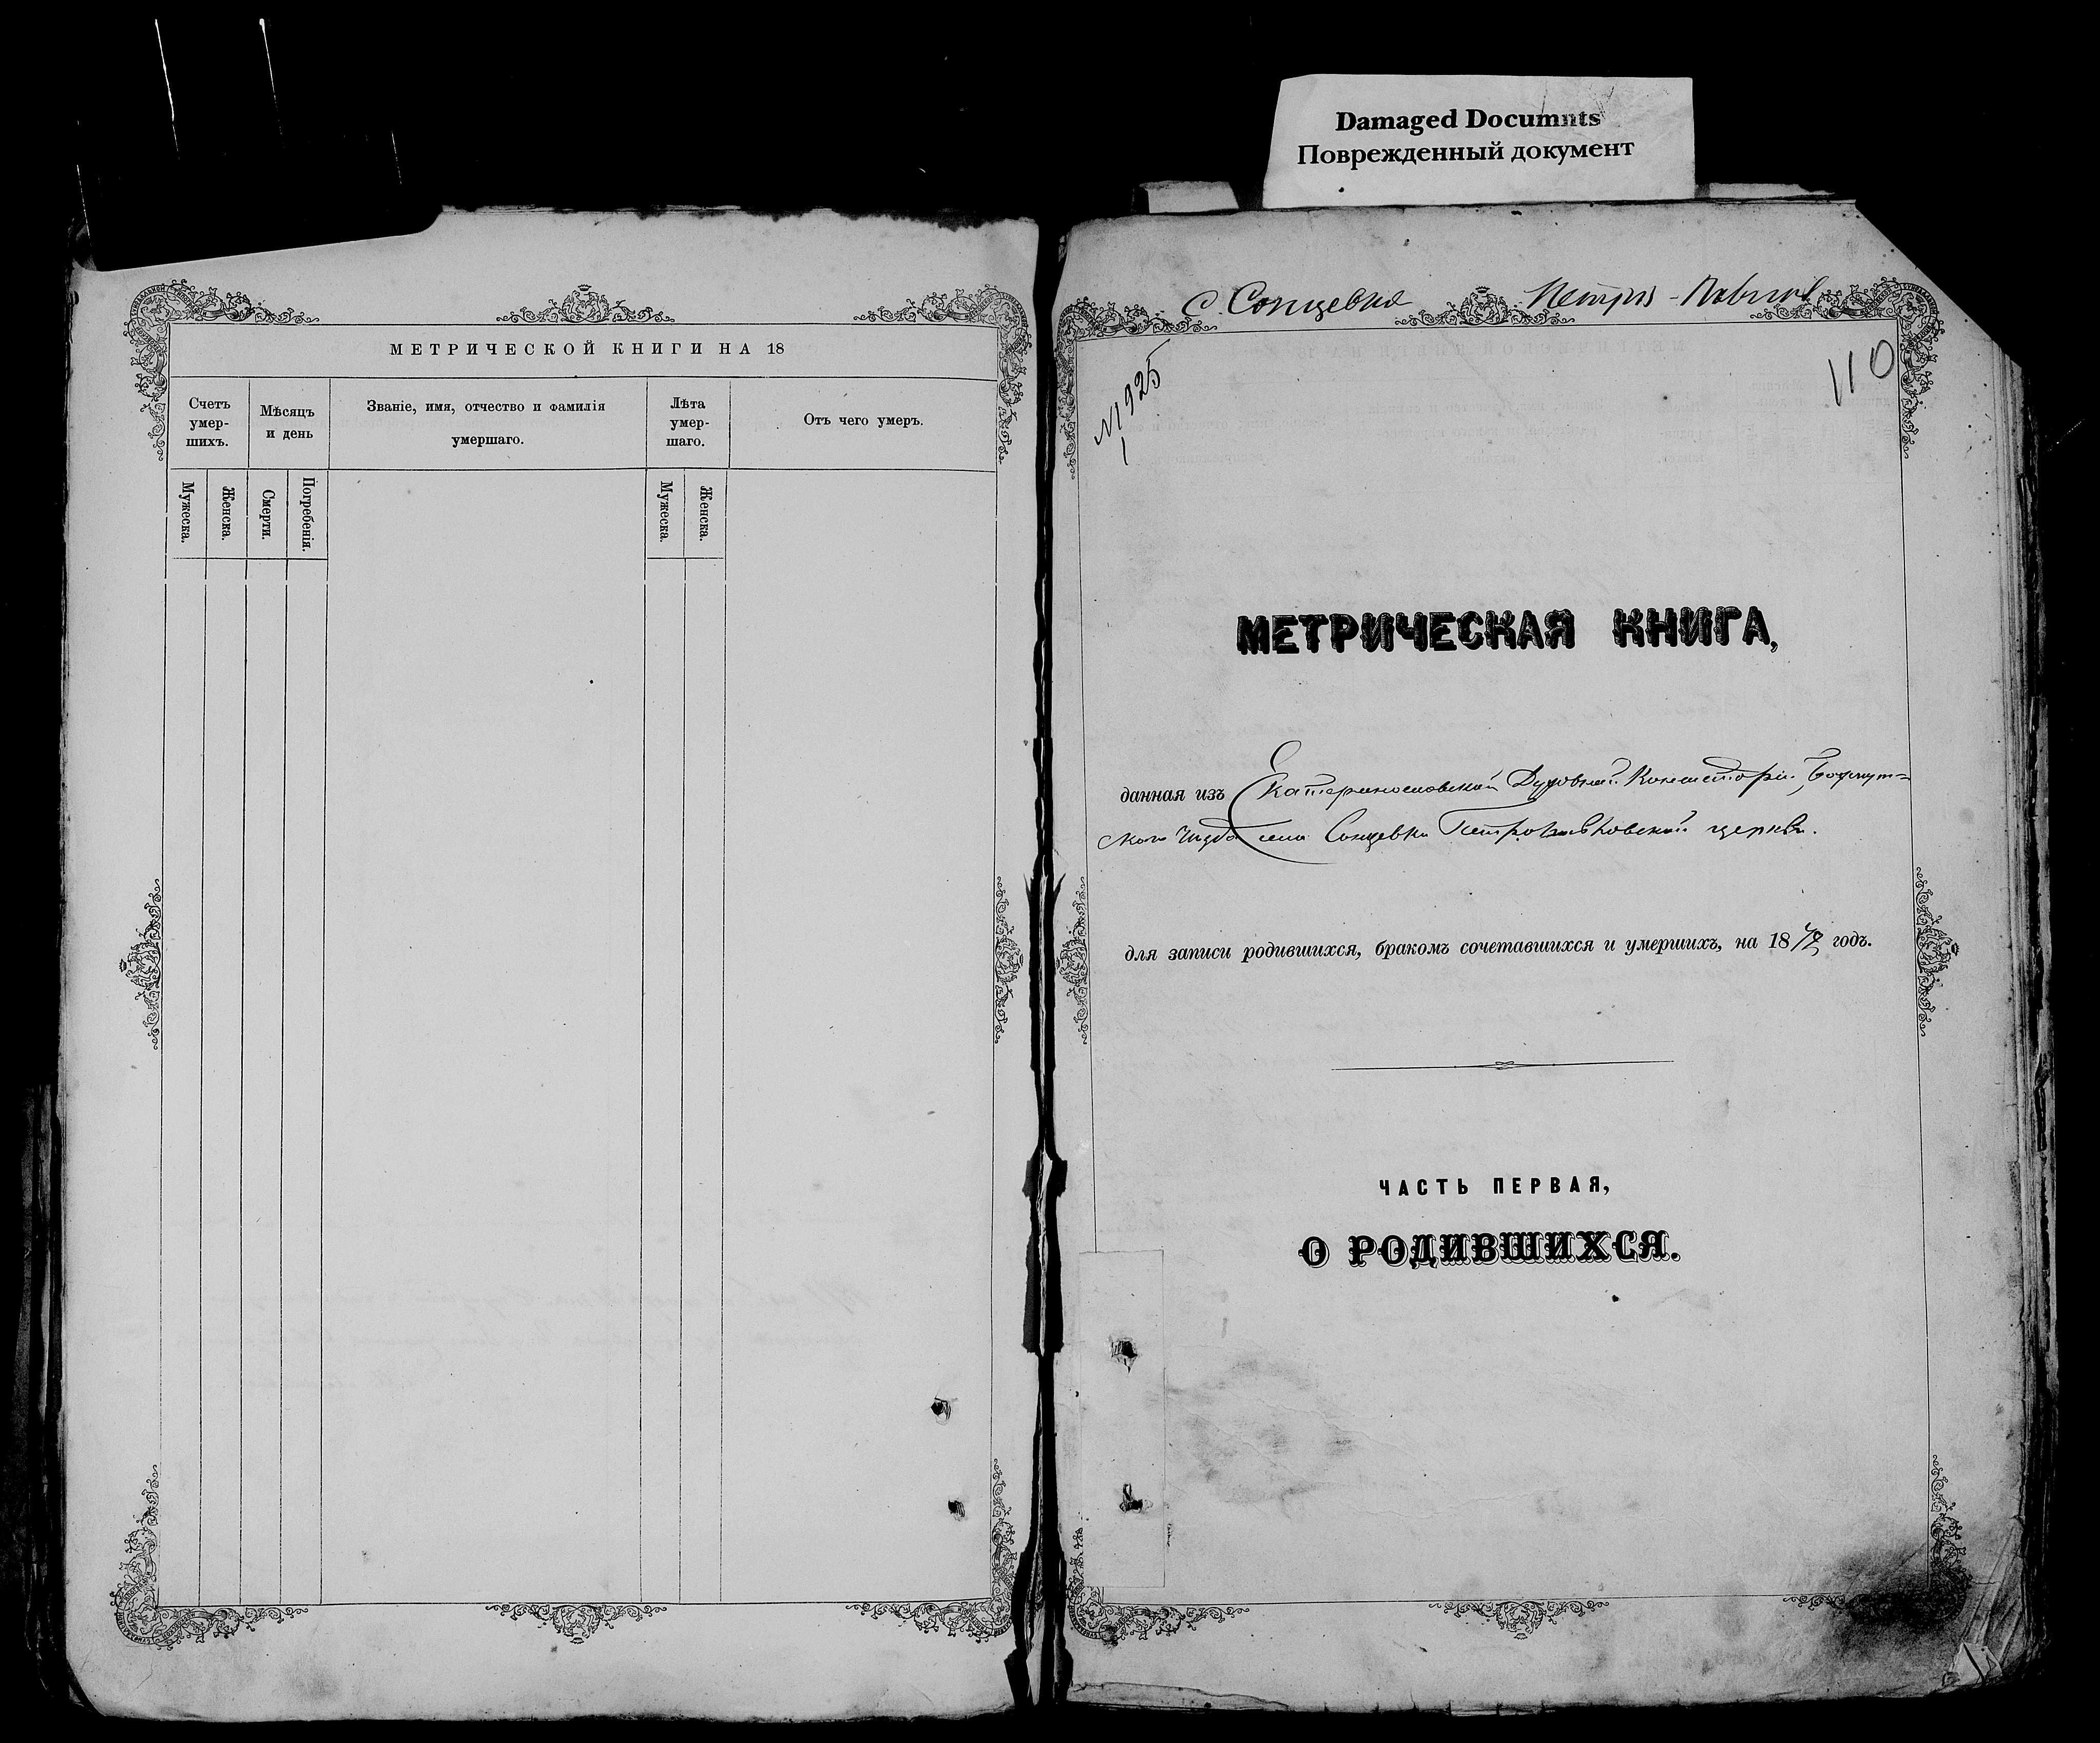 Damaged Documnts
Поврежденный документ
МЕТРИЧЕСКОЙ КНИГИ НА 18
Счетъ умер-шихъ.
Мѣсяцъ и день
Званіе, имя, отчество и фамилія умершаго.
Лѣта умер-шаго.
Отъ чего умеръ.
Мужеска.
Женска.
Смерти.
Погребенія.
Мужеска.
Женска.
с. Сонцевка Петро-Павлов
№ 925
110
МЕТРИЧЕСКАЯ КНИГА,
данная изъ Екатеринославской Духовной Консисторіи, Бахмут=
скаго уѣзда села Сонцевки Петропавловской церкви.
для записи родившихся, бракомъ сочетавшихся и умершихъ, на 18 годъ.
ЧАСТЬ ПЕРВАЯ,
О РОДИВШИХСЯ.